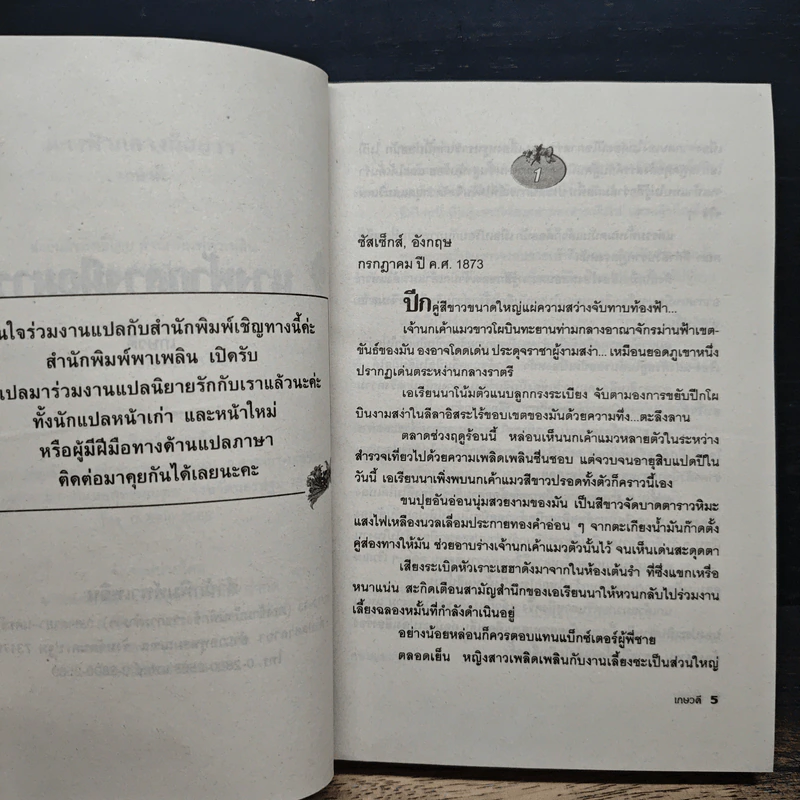 นใจร่วมงานแปลกับสำนักพิมพ์เชิญทางนี้ค่ะ
สำนักพิมพ์พาเพลิน เปิดรับ
แปลมาร่วมงานแปลนิยายรักกับเราแล้วนะคะ
ทั้งนักแปลหน้าเก่า และหน้าใหม่
หรือผู้มีฝีมือทางด้านแปลภาษา
ติดต่อมาคุยกันได้เลยนะคะ
1
ซัสเซ็กส์, อังกฤษ
กรกฎาคม ปี ค.ศ. 1873
ปีกคู่สีขาวขนาดใหญ่แผ่ความสว่างจับทาบท้องฟ้า...
เจ้านกเค้าแมวขาวโผบินทะยานท่ามกลางอาณาจักรม่านฟ้าเขต-
ขัณธ์ของมัน องอาจโดดเด่น ประดุจราชาผู้งามสง่า... เหมือนยอดภูเขาหนึ่ง
ปรากฏเด่นตระหง่านกลางราตรี
เอเรียนนาโน้มตัวแนบลูกกรงระเบียง จับตามองการขยับปีกโผ
บินงามสง่าในลีลาอิสระไร้ขอบเขตของมันด้วยความทึ่ง...ตะลึงลาน
ตลาดช่วงฤดูร้อนนี้ หล่อนเห็นนกเค้าแมวหลายตัวในระหว่าง
สำรวจเที่ยวไปด้วยความเพลิดเพลินชื่นชอบ แต่จวบจนอายุสิบแปดปีใน
วันนี้ เอเรียนนาเพิ่งพบนกเค้าแมวสีขาวปรอดทั้งตัวก็คราวนี้เอง
ขนปุยอันอ่อนนุ่มสวยงามของมัน เป็นสีขาวจัดบาดตาราวหิมะ
แสงไฟเหลืองนวลเลื่อมประกายทองคำอ่อน ๆ จากตะเกียงน้ำมันก๊าดตั้ง
คู่ส่องทางให้มัน ช่วยอาบร่างเจ้านกเค้าแมวตัวนั้นไว้ จนเห็นเด่นสะดุดตา
เสียงระเบิดหัวเราะเฮฮาดังมาจากในห้องเต้นรำ ที่ซึ่งแขกเหรื่อ
หนาแน่น สะกิดเตือนสามัญสำนึกของเอเรียนนาให้หวนกลับไปร่วมงาน
เลี้ยงฉลองหมั้นที่กำลังดำเนินอยู่
อย่างน้อยหล่อนก็ควรตอบแทนแบ็กซ์เตอร์ผู้พี่ชาย
ตลอดเย็น หญิงสาวเพลิดเพลินกับงานเลี้ยงซะเป็นส่วนใหญ่
เกษวดี 5